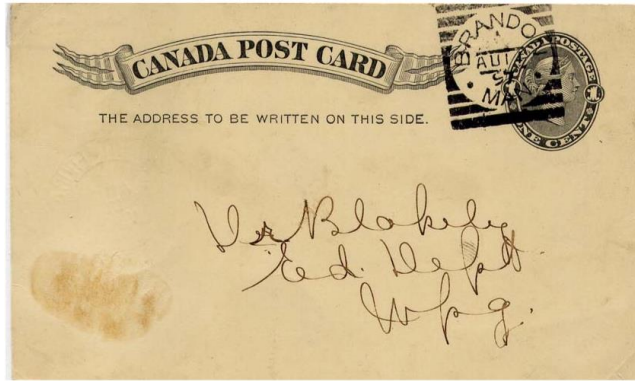 CANADA POST CARD
BRANDO
AU
MAN
CANADA POSTAGE
ONE CENT
THE ADDRESS TO BE WRITTEN ON THIS SIDE.
Blakely
Ed. Dept.
Wpg.